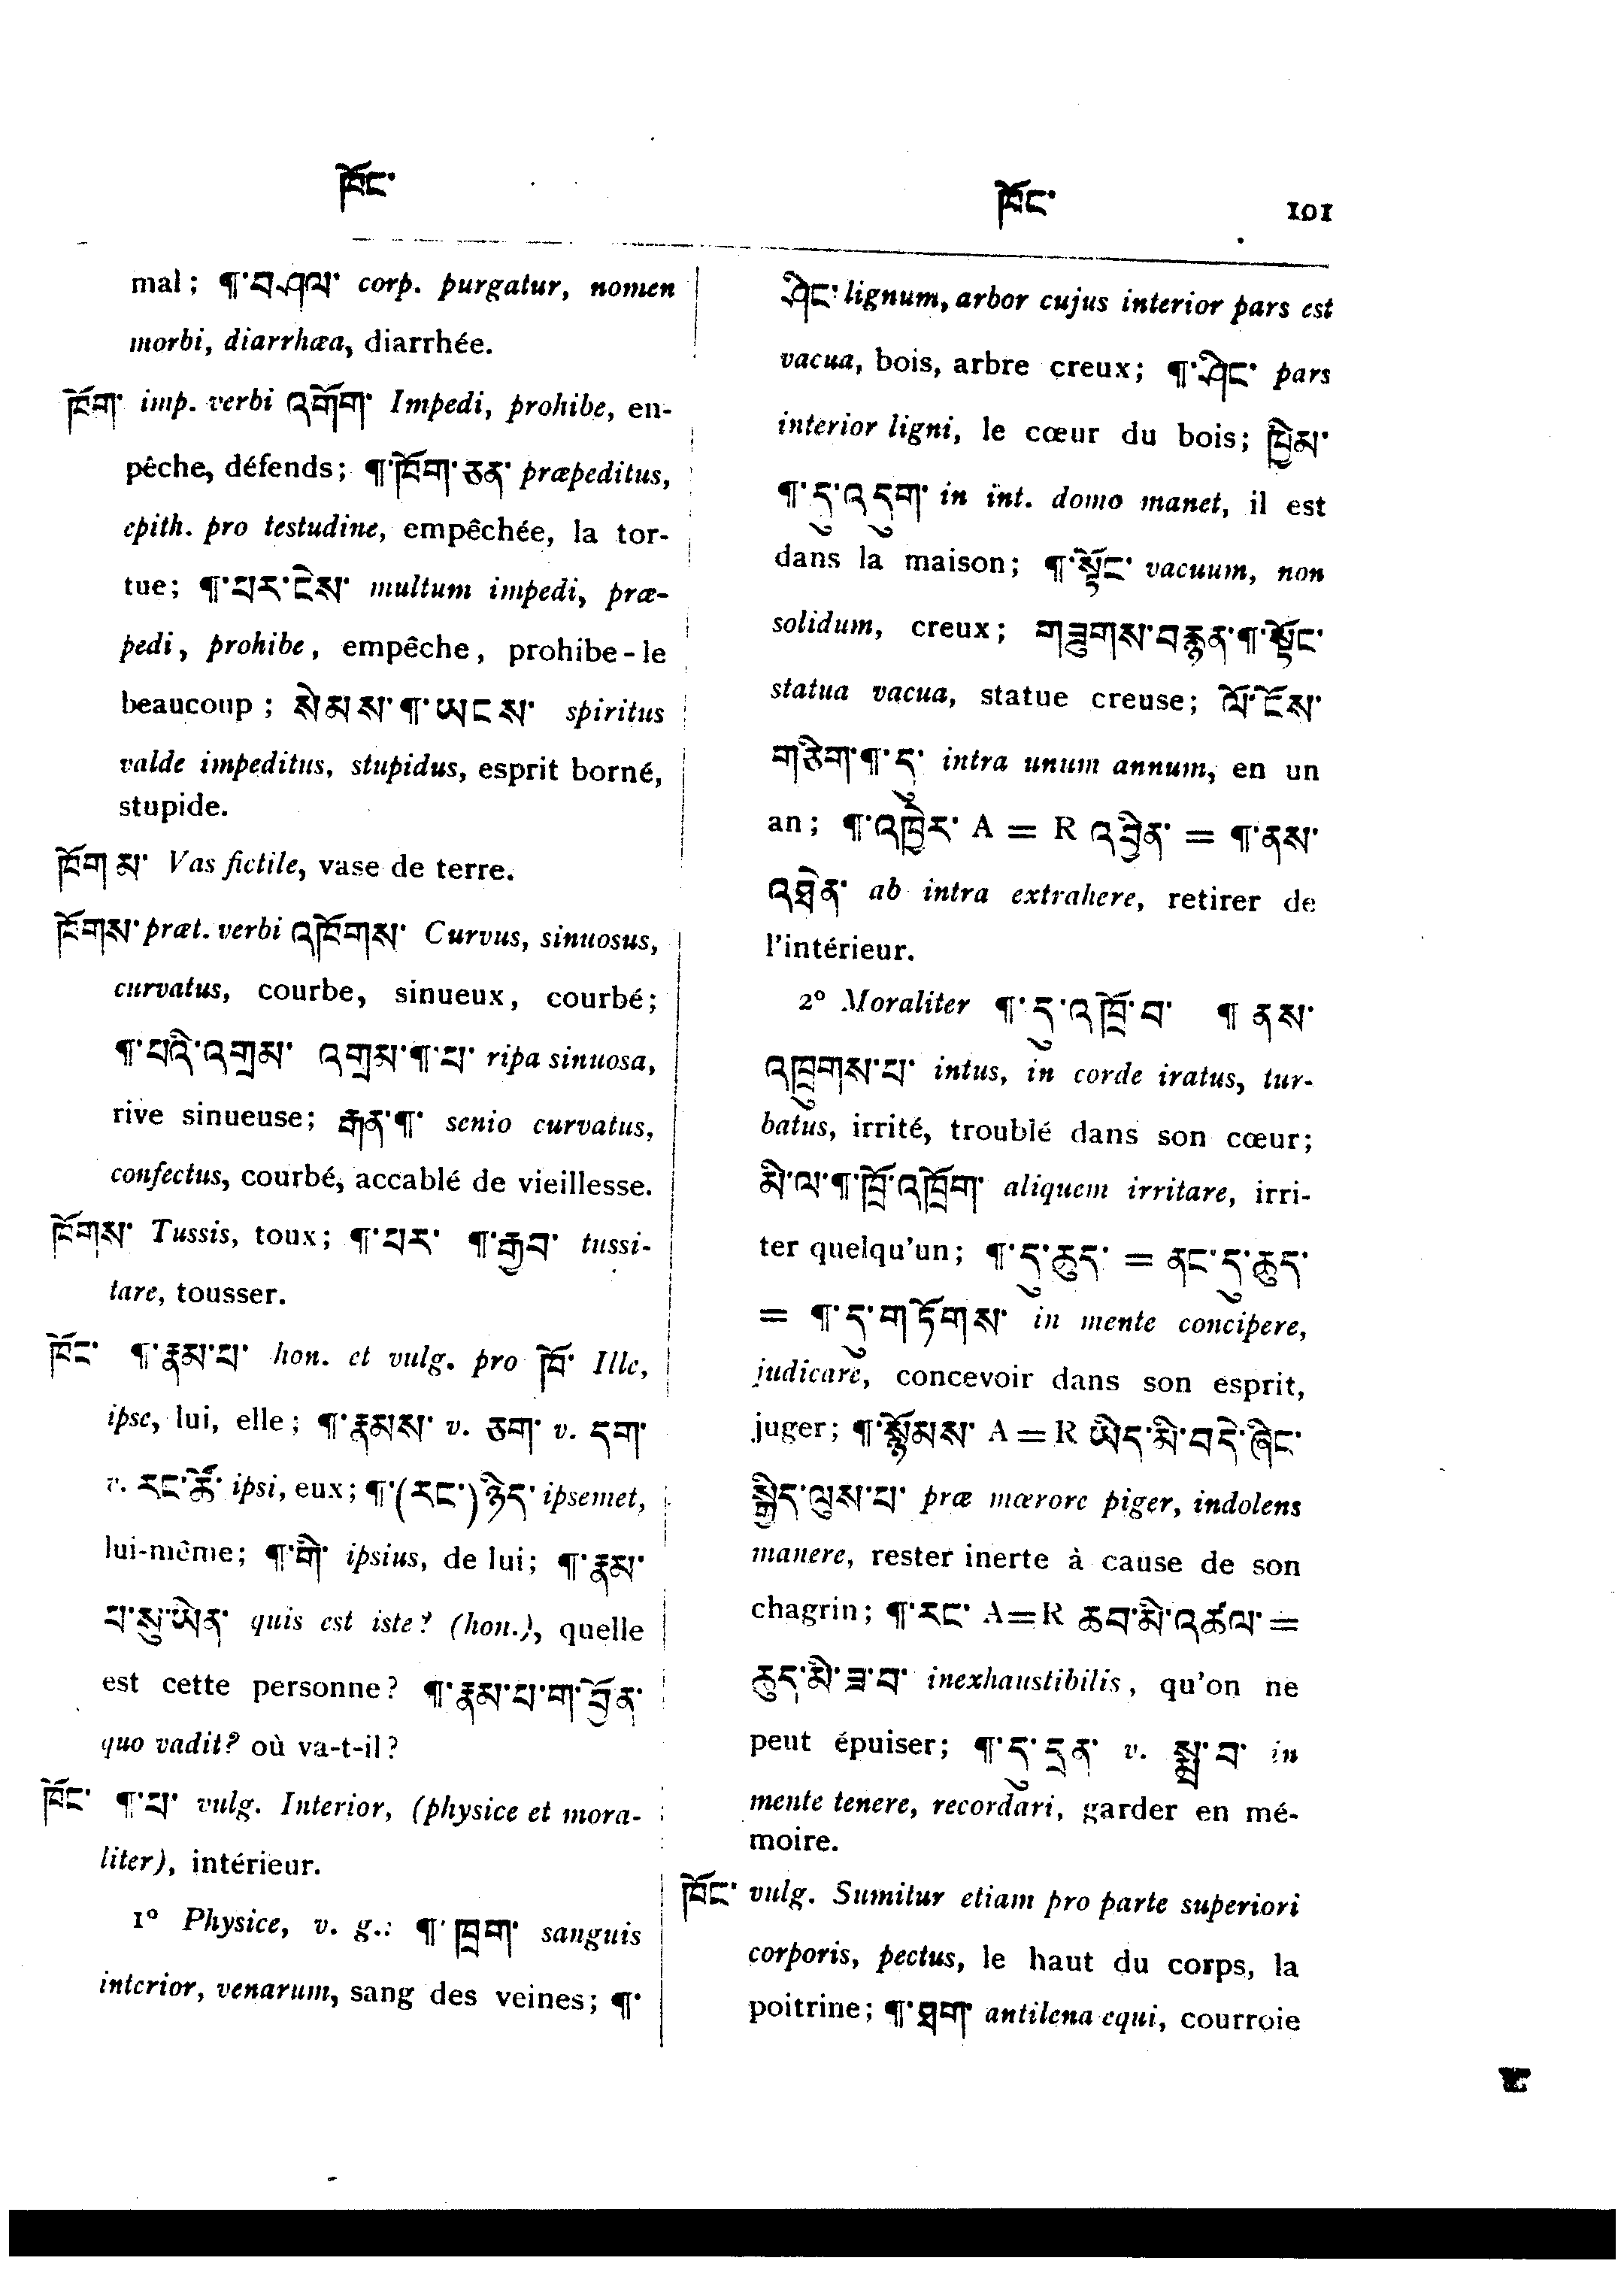 ཁོང་
ཁོང་ 101
mal; ¶་བཤལ་ corp. purgatur, nomen
morbi, diarrhœa, diarrhée.
ཁོག་ imp. verbi འགོག་ Impedi, prohibe, en-
pêche, défends; ¶་ཁོག་ཅན་ præpeditus,
epith. pro testudine, empêchée, la tor-
tue; ¶་པར་ངེས་ multum impedi, præ-
pedi, prohibe, empêche, prohibe-le
beaucoup; སེམས་¶་ཡངས་ spiritus
valde impeditus, stupidus, esprit borné,
stupide.
ཁོག མ་ Vas fictile, vase de terre.
ཁོགས་ præt. verbi འཁོགས་ Curvus, sinuosus,
curvatus, courbe, sinueux, courbé;
¶་པའི་འགྲམ་ འགྲམ་¶་པ་ ripa sinuosa,
rive sinueuse; རྒན་¶་ senio curvatus,
confectus, courbé, accablé de vieillesse.
ཁོགས་ Tussis, toux; ¶་པར་ ¶་རྒྱབ་ tussi-
tare, tousser.
ཁོང་ ¶་རྣམ་པ་ hon. et vulg. pro ཁོ་ Ille,
ipse, lui, elle; ¶་རྣམས་ v. ཅག་ v. དག་
v. རང་ཚོ་ ipsi, eux; ¶་(རང་)ཉིད་ ipsemet,
lui-même; ¶་གི་ ipsius, de lui; ¶་རྣམ་
པ་སུ་ཡིན་ quis est iste? (hon.), quelle
est cette personne? ¶་རྣམ་པ་ག་བྱོན་
quo vadit? où va-t-il?
ཁོང་ ¶་པ་ vulg. Interior, (physice et mora-
liter), intérieur.
1º Physice, v. g.: ¶་ཁྲག་ sanguis
interior, venarum, sang des veines; ¶་
ཤིང་ lignum, arbor cujus interior pars est
vacua, bois, arbre creux; ¶་ཤིང་ pars
interior ligni, le cœur du bois; ཁྱིམ་
¶་དུ་འདུག་ in int. domo manet, il est
dans la maison; ¶་སྟོང་ vacuum, non
solidum, creux; གཟུགས་བརྙན་¶་སྟོང་
statua vacua, statue creuse; ལོ་ངོས་
གཅིག་¶་དུ་ intra unum annum, en un
an; ¶་འཁྱེར་ A = R འབྱིན་ = ¶་ནས་
འཐེན་ ab intra extrahere, retirer de
l'intérieur.
2º Moraliter ¶་དུ་འཁྲོ་བ་ ¶ ནས་
འཁྲུགས་པ་ intus, in corde iratus, tur-
batus, irrité, troublé dans son cœur;
མི་ལ་¶་ཁྲོ་འཁྲོག་ aliquem irritare, irri-
ter quelqu'un; ¶་དུ་ཆུད་ = ནང་དུ་ཆུད་
= ¶་དུ་གཏོགས་ in mente concipere,
judicare, concevoir dans son esprit,
juger; ¶་སྙོམས་ A = R ཡིད་མི་བདེ་ཞིང་
སྒྱིད་ལུས་པ་ præ mœrore piger, indolens
manere, rester inerte à cause de son
chagrin; ¶་རང་ A=R ཆབ་མི་འཚལ་ =
ཆུད་མི་ཟ་བ་ inexhaustibilis, qu'on ne
peut épuiser; ¶་དུ་དྲན་ v. སྨྲ་བ་ in
mente tenere, recordari, garder en mé-
moire.
ཁོང་ vulg. Sumitur etiam pro parte superiori
corporis, pectus, le haut du corps, la
poitrine; ¶་ཐག་ antilena equi, courroie